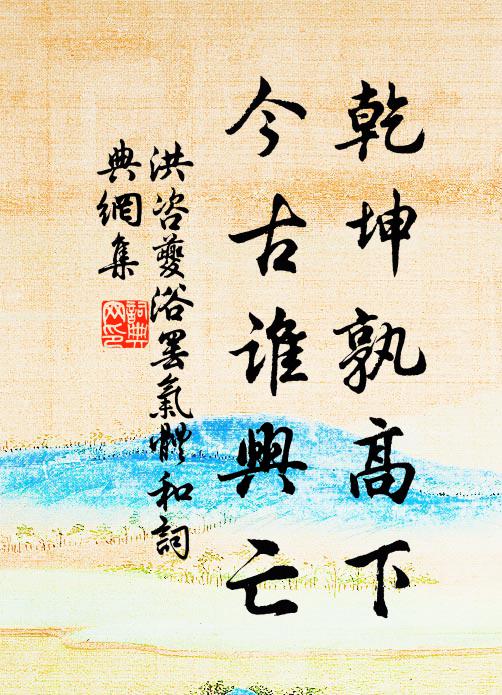 乾坤孰高下
今古誰興亡
洪咨夔浴罷氣體和詞
典網集
詞典
网印